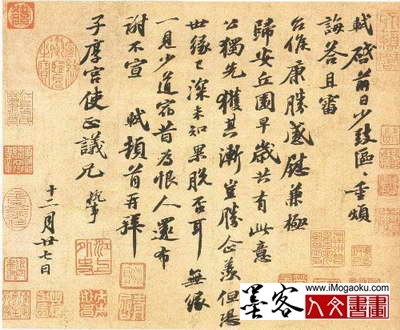 軾啓前日少致區〻重煩
誨答且審
台候康勝感慰兼極
歸安丘園早歲共有此意
公獨先獲其漸豈勝企羨但恐
世緣已深未知果脫否耳無緣
一見少道宿昔為恨人還布
謝不宣 軾頓首再拜
子厚宮使正議兄 執事
十二月廿七日
墨客
www.iMogaoku.com
人文書畫